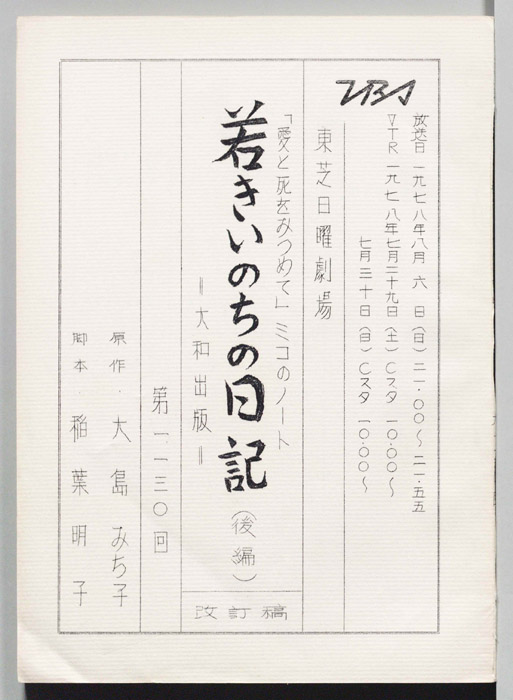 TBS
放送日 一九七八年八月 六 日（日）二一・〇〇〜二一・五五
VTR 一九七八年七月二十九日（土）Cスタ 一〇・〇〇〜
七月三十日（日）Cスタ 一〇・〇〇〜
東芝日曜劇場
「愛と死をみつめて」ミコのノート
若きいのちの日記（後編）
＝大和出版＝
改訂稿
第一一三〇回
原作・大島みち子
脚本・稲葉明子